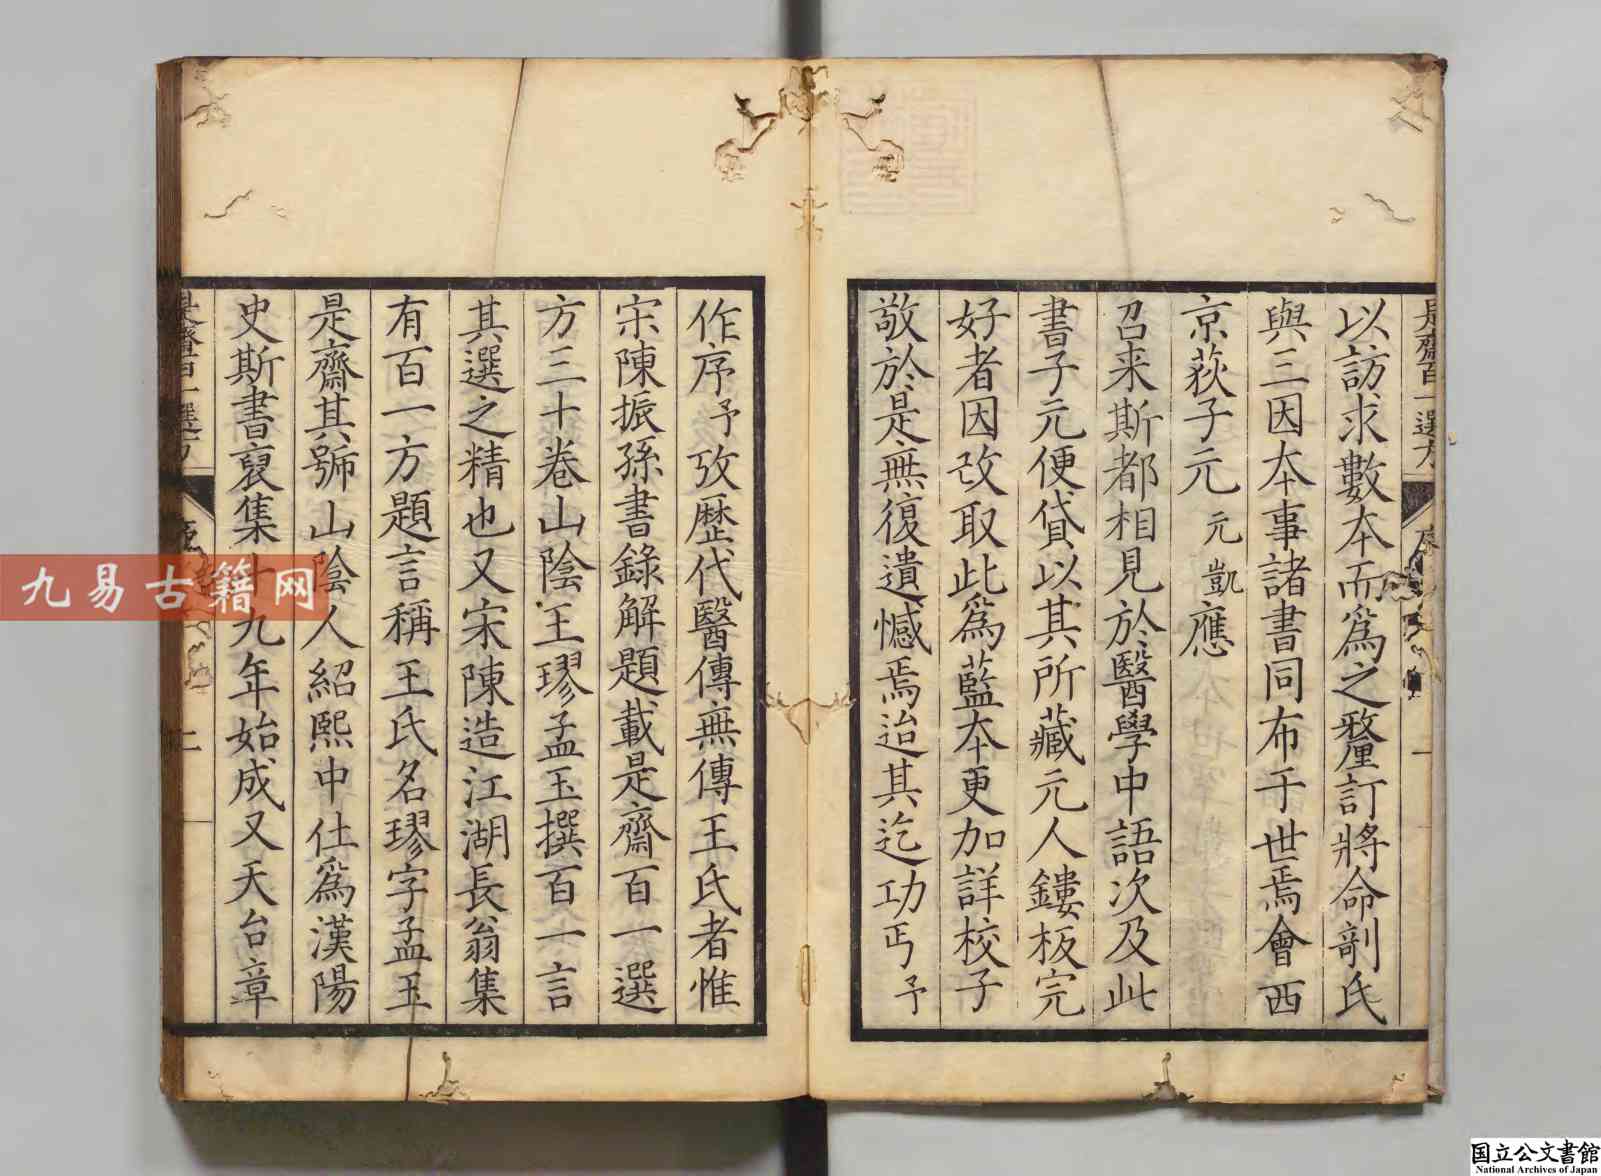 是齋百一選方
序
一
以訪求數本而爲之釐訂將命剞氏
與三因本事諸書同布于世焉會西
京荻子元元凱應
召来斯都相見於醫學中語次及此
書子元便貸以其所藏元人鏤板完
好者因改取此爲藍本更加詳校子
敬於是無復遺憾焉迨其迄功丐予
作序予攷歷代醫傳無傳王氏者惟
宋陳振孫書錄解題載是齋百一選
方三十卷山陰王璆孟玉撰百一言
其選之精也又宋陳造江湖長翁集
有百一方題言稱王氏名璆字孟玉
是齋其號山陰人紹熙中仕爲漢陽
史斯書裒集十九年始成又天台章
是齋百一選方
序
二
九易古籍网
国立公文書館
National Archives of Japan